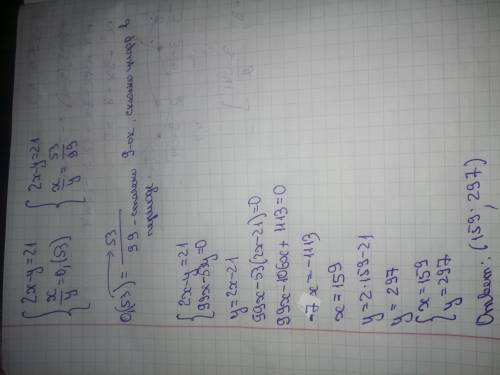 {2x-y=21 {2x-y=21
{x/y=0,(53) {x/y=53/99
0(53)= 53/99 - столько 9-ок, сколько цифр в
периоде.
{2x-y=21
{99x-53y=0
y=2x-21
99x-53(2x-21)=0
99x-106x+1113=0
-7x=-1113
x=159
y=2·159-21
y=297
{x=159
{y=297
Ответ: (159; 297)